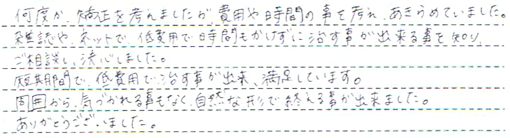 何度か、矯正を考えましたが費用や時間の事を考え、あきらめていました。
雑誌やネットで、低費用で時間もかけずに治す事が出来る事を知り、
ご相談し、決心しました。
短期間で、低費用で治す事が出来、満足しています。
周囲から、気づかれる事もなく、自然な形で終える事が出来ました。
ありがとうございました。